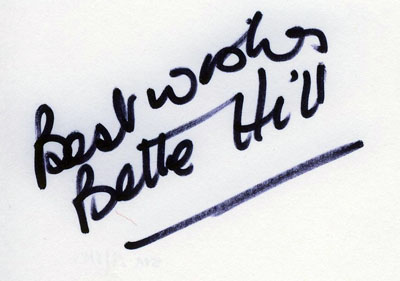 Best wishes
Bette Hill